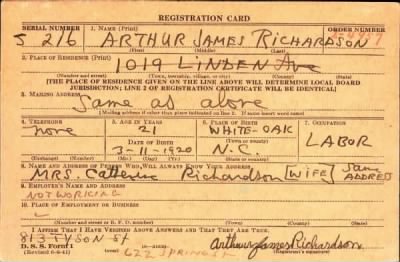 REGISTRATION CARD
SERIAL NUMBER 1. Name (Print) ORDER NUMBER
S 216 ARTHUR JAMES RICHARDSON
(First) (Middle) (Last)
2. PLACE OF RESIDENCE (Print)
1019 LINDEN Ave
(Number and street) (Town, township, village, or city) (County) (State)
[THE PLACE OF RESIDENCE GIVEN ON THE LINE ABOVE WILL DETERMINE LOCAL BOARD
JURISDICTION; LINE 2 OF REGISTRATION CERTIFICATE WILL BE IDENTICAL]
3. MAILING ADDRESS
Same as above
[Mailing address if other than place indicated on line 2. If same insert word same]
4. TELEPHONE 5. AGE IN YEARS 6. PLACE OF BIRTH 7. OCCUPATION
none 21 WHITE-OAK
DATE OF BIRTH (Town or county) LABOR
3-11-1920 N.C.
(Mo.) (Day) (Yr.) (State or country)
8. NAME AND ADDRESS OF PERSON WHO WILL ALWAYS KNOW YOUR ADDRESS
MRS. Catherine Richardson [WIFE] Same ADDRESS
9. EMPLOYER'S NAME AND ADDRESS
NOT WORKING
10. PLACE OF EMPLOYMENT OR BUSINESS
(Number and street or R. F. D. number) (Town) (County) (State)
I AFFIRM THAT I HAVE VERIFIED ABOVE ANSWERS AND THAT THEY ARE TRUE.
813 St
D. S. S. Form 1
622 SPRING St Arthur James Richardson
(Registrant's signature)